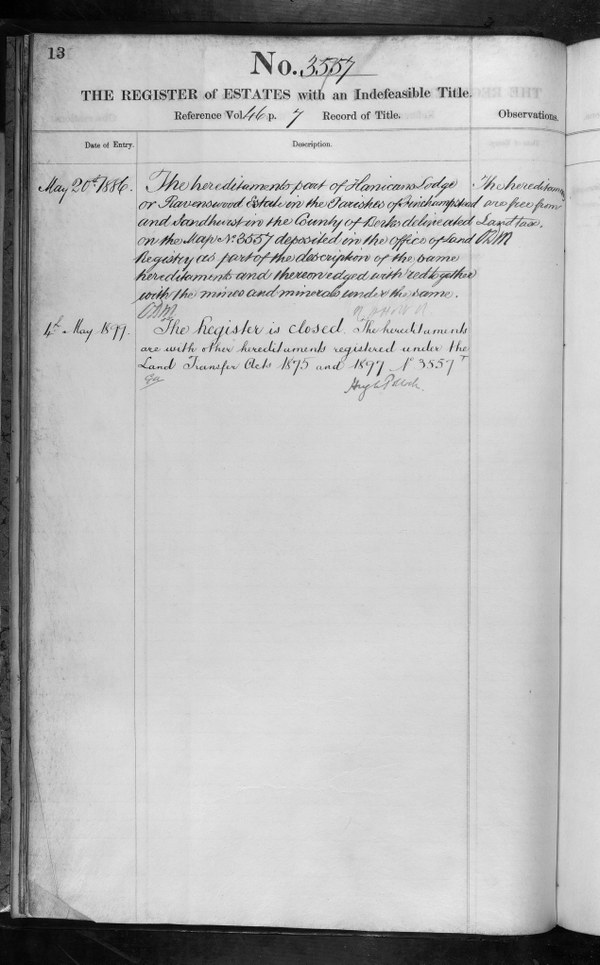 13
No. 3557
THE REGISTER of ESTATES with an Indefeasible Title.
Reference Vol. 46 p. 7 Record of Title.
Observations.
Date of Entry.
Description.
May 20th 1886.
The hereditaments part of Hanicans Lodge
or Ravenswood Estate in the Parishes of Finchampstead
and Sandhurst in the County of Berks delineated
on the Map No. 3557 deposited in the office of Land
Registry as part of the description of the same
hereditaments and thereon edged with red together
with the mines and minerals under the same.
The hereditaments
are free from
Land tax.
4th May 1899.
The Register is closed. The hereditaments
are with other hereditaments registered under the
Land Transfer Acts 1875 and 1897 No 3557